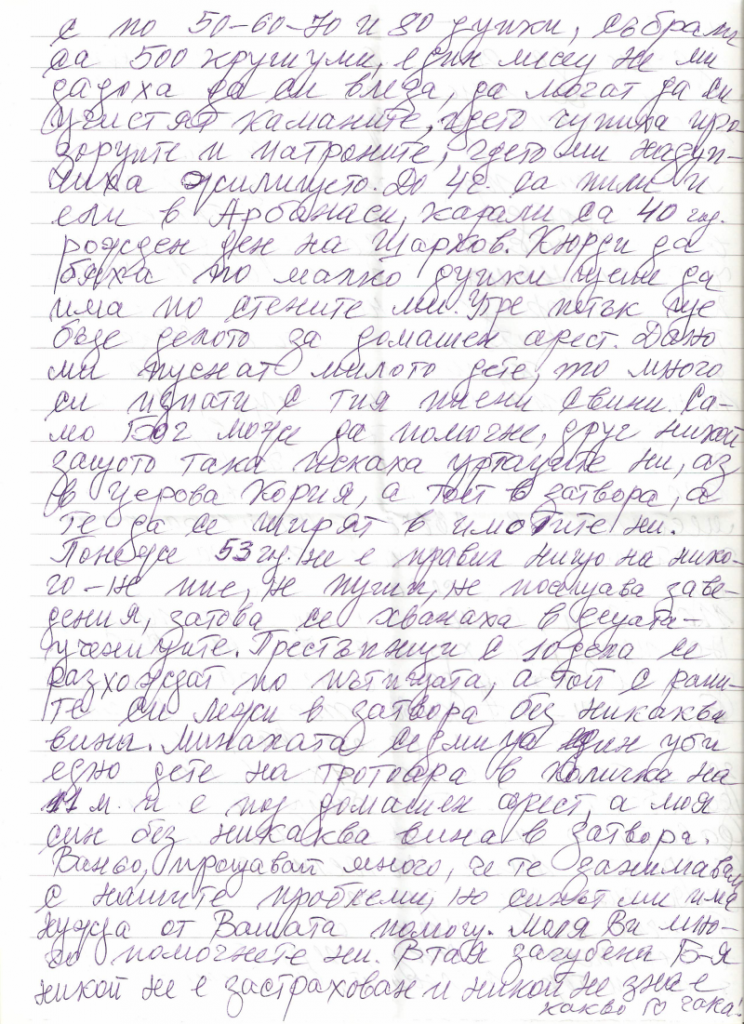 с по 50-60-70 и 80 дупки, събрали
са 500 куршуми, един месец не ми
дадоха да си вляза, да могат да си
учистят камъните, където чупиха про
зорците и патроните, където ми надуп-
чиха жилището. До 4ч. са пили и
яли в Арбанаси, карали са 40 год.
рожден ден на Шарков. Кюрди да
бяха по малко дупки щеше да
има по стените ми. Утре петък ще
бъде делото за домашен арест. Дано
ми пуснат милото дете, то много
си изпати с тия пияни свини. Са-
мо Бог може да помогне, друг никой
защото така искаха управите ни, аз
в Церова Кория, а той в затвора, а
те да се ширят в имотите ни.
Понеже 53 год. не е правил нищо на нико-
го - не пие, не пуши, не посещава заве-
дения, затова се хванаха в децата-
ученици​те. Престъпници с 10 дела се
разхождат по пътищата, а той с рани-
те си лежи в затвора без никаква
вина. Миналата седмица един уби
едно дете на тротоара в количка на
11 м. и е под домашен арест, а моя
син без никаква вина в затвора.
Ваньо, прощавай много, че те занимавам
с нашите проблеми, но синът ми има
нужда от Вашата помощ. Моля Ви мно-
го помогнете ни. В тая загубена Б-я
никой не е застрахован и никой не знае
какво го чака!